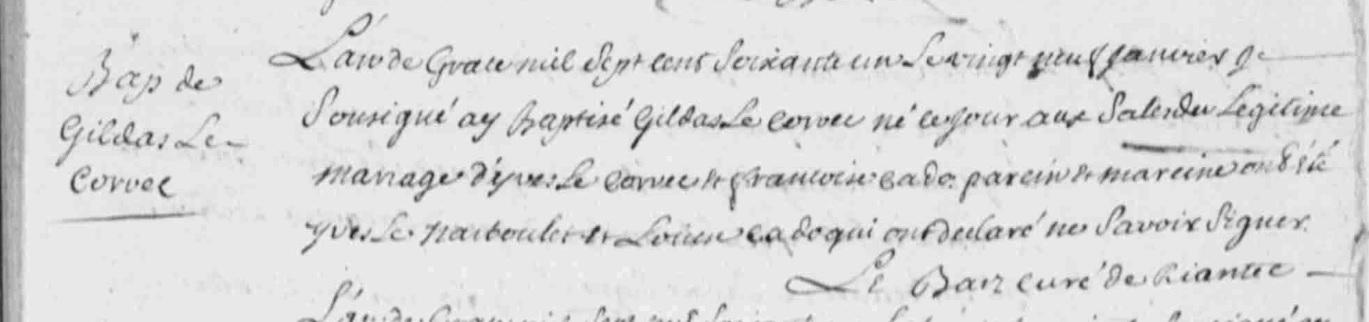 Bap de
Gildas Le
Corvec
L'an de Grace mil Sept cens Soixante un Le vingt neuf Janvier Je
Sousigné ay Baptisé Gildas Le corvec né ce Jour aux Sales du Legitime
mariage d'yves Le corvec et francoise cado. parein et mareine ont été
yves Le et Louise cado qui ont declaré ne Savoir Signer.
Le Barz curé de Riantec